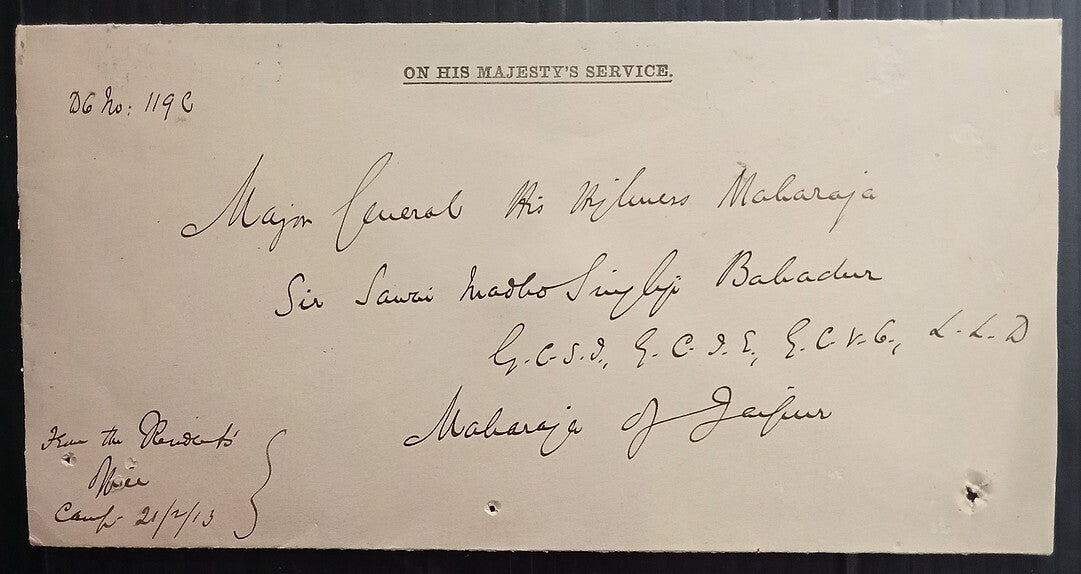 ON HIS MAJESTY'S SERVICE.
DO No: 119 C
Major General His Highness Maharaja
Sir Sawai Madho Singhji Bahadur
G.C.S.I., G.C.I.E., G.C.V.O., L.L.D
Maharaja of Jaipur
From the Resident's
Office
Camp 21/2/13